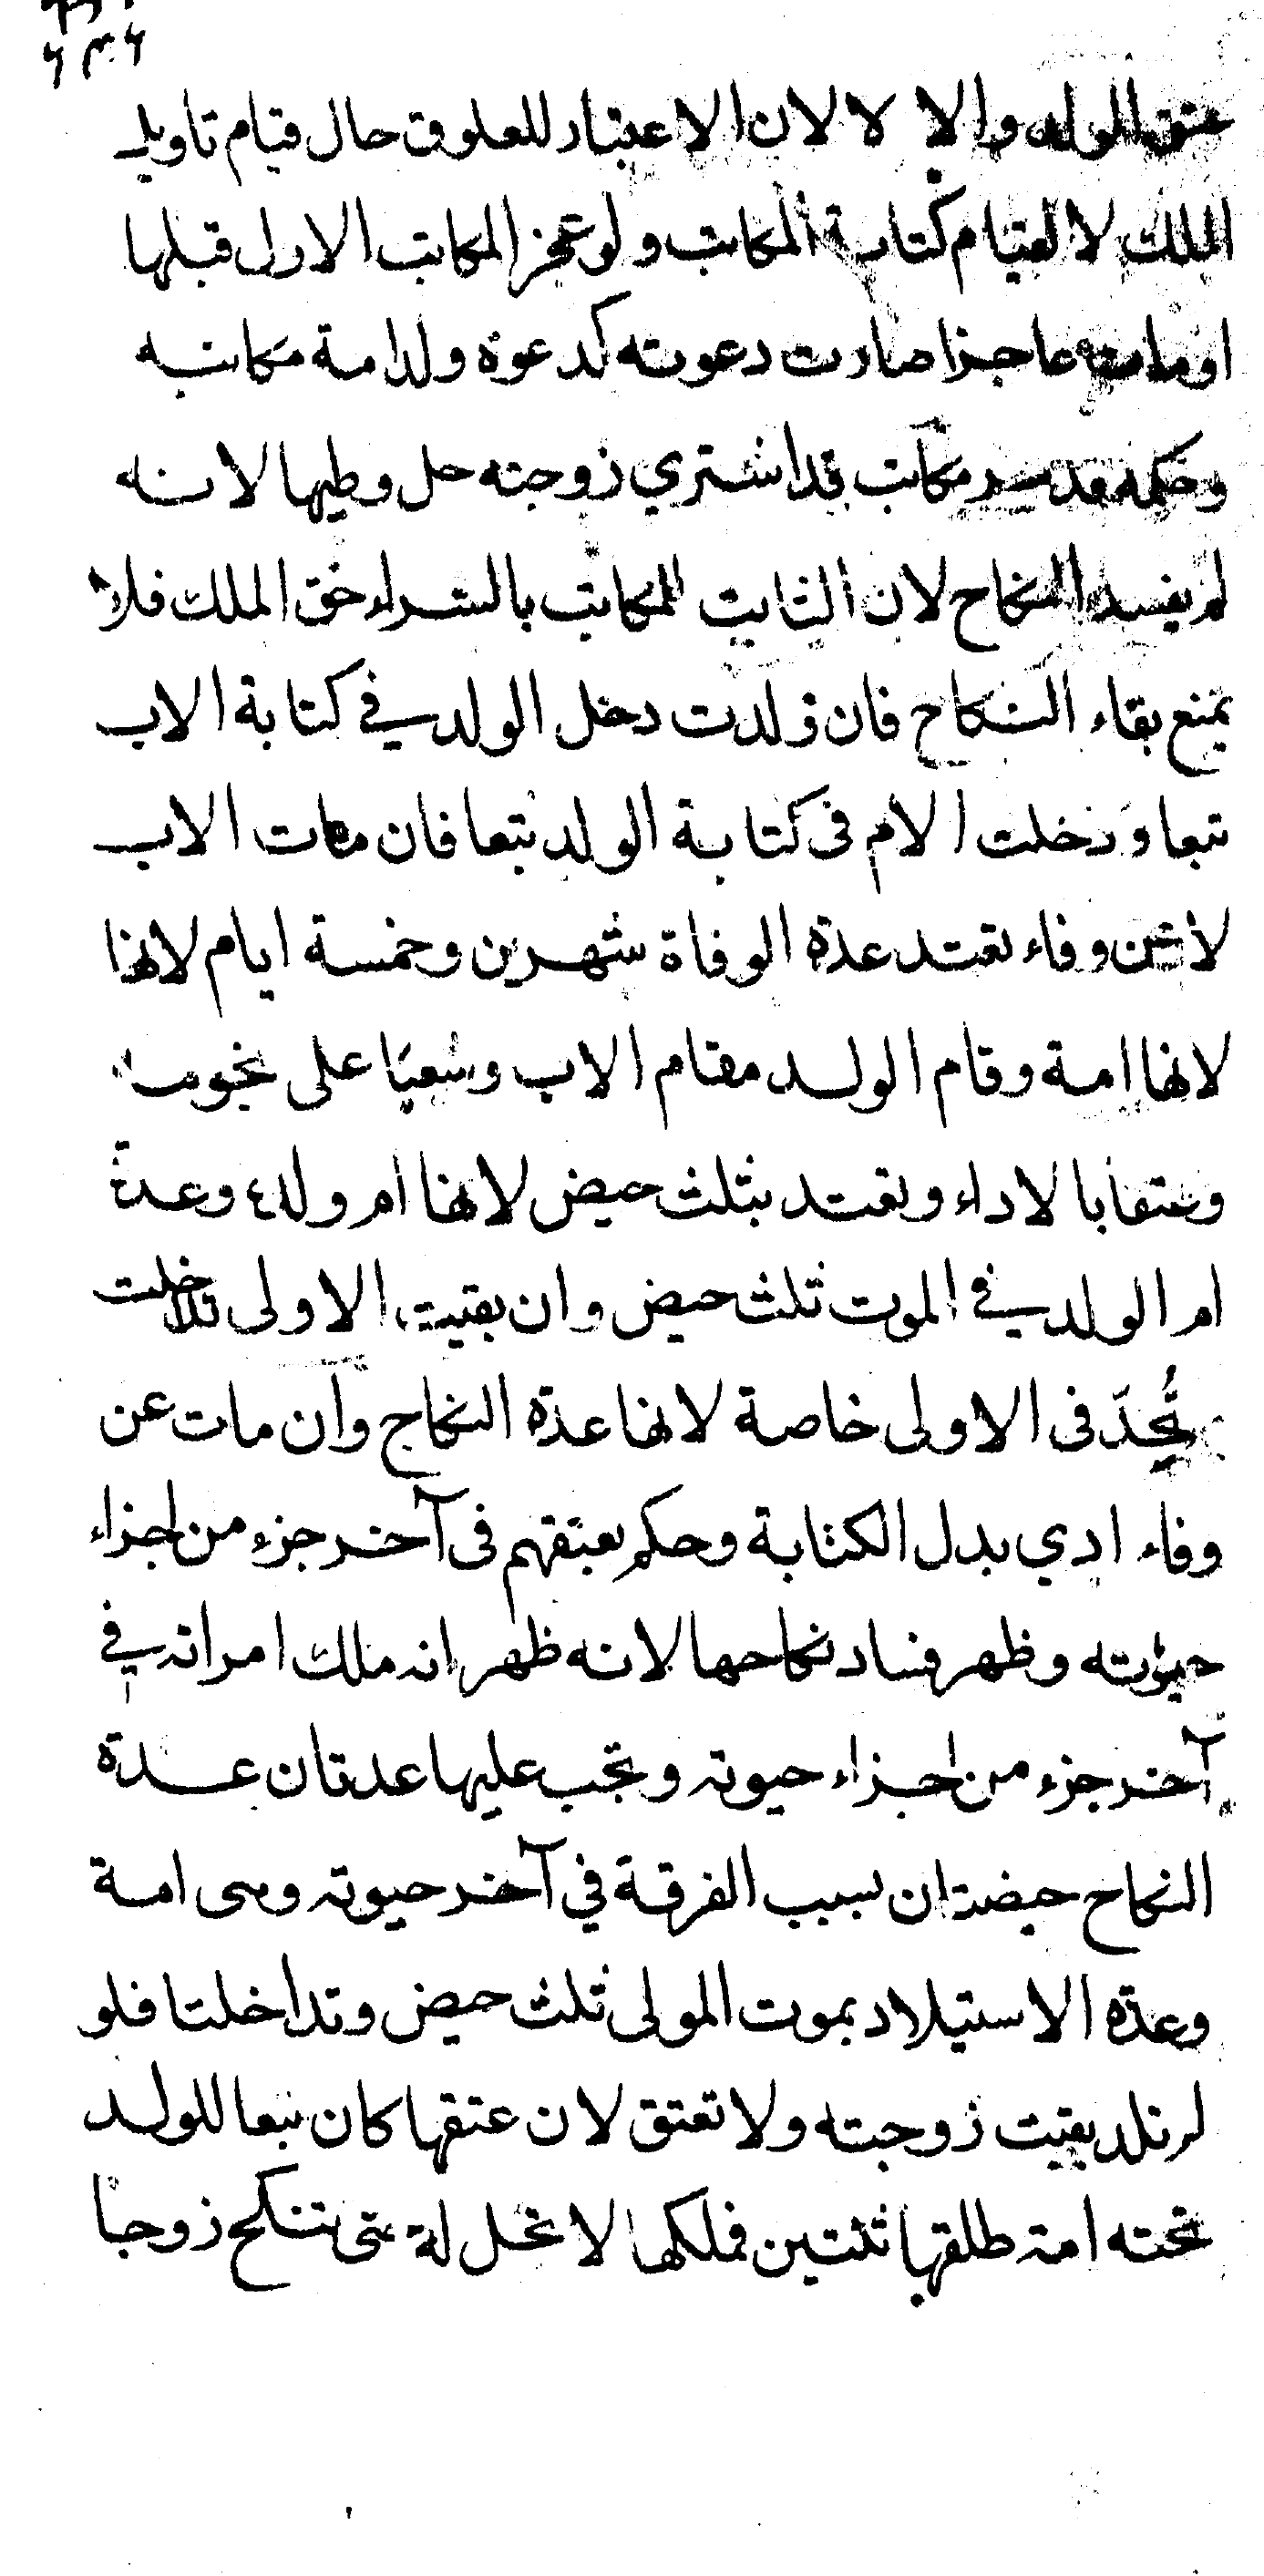 عتق الولد والا لا لان الاعتبار للعلوق حال قيام تاويل
الملك لا لقيام كتابة المكاتب ولو عجز المكاتب الاول قبلها
او مات عاجزا صارت دعوته كدعوة ولد امة مكاتبه
وحكمه قد مر مكاتب قد اشتري زوجته حل وطيها لانه
لم يفسد النكاح لان الثابت للمكاتب بالشراء حق الملك فلا
يمنع بقاء النكاح فان ولدت دخل الولد في كتابة الاب
تبعا ودخلت الام فى كتابة الولد تبعا فان مات الاب
لا عن وفاء تعتد عدة الوفاة شهرين وخمسة ايام لانها
لانها امة وقام الولد مقام الاب وسعيا على نجومه
وعتقا بالاداء وتعتد بثلث حيض لانها ام ولد وعدة
ام الولد في الموت ثلث حيض وان بقيت الاولى تداخلت
تحد فى الاولى خاصة لانها عدة النكاح وان مات عن
وفاء ادي بدل الكتابة وحكم بعتقهم فى آخر جزء من اجزاء
حيوته وظهر فساد نكاحها لانه ظهر انه ملك امراته في
آخر جزء من اجزاء حيوته وتجب عليها عدتان عدة
النكاح حيضتان بسبب الفرقة في آخر حيوته وهى امة
وعدة الاستيلاد بموت المولى ثلث حيض وتداخلتا فلو
لم تلد بقيت زوجته ولا تعتق لان عتقها كان تبعا للولد
تحته امة طلقها ثنتين فملكها لا تحل له حتى تنكح زوجا